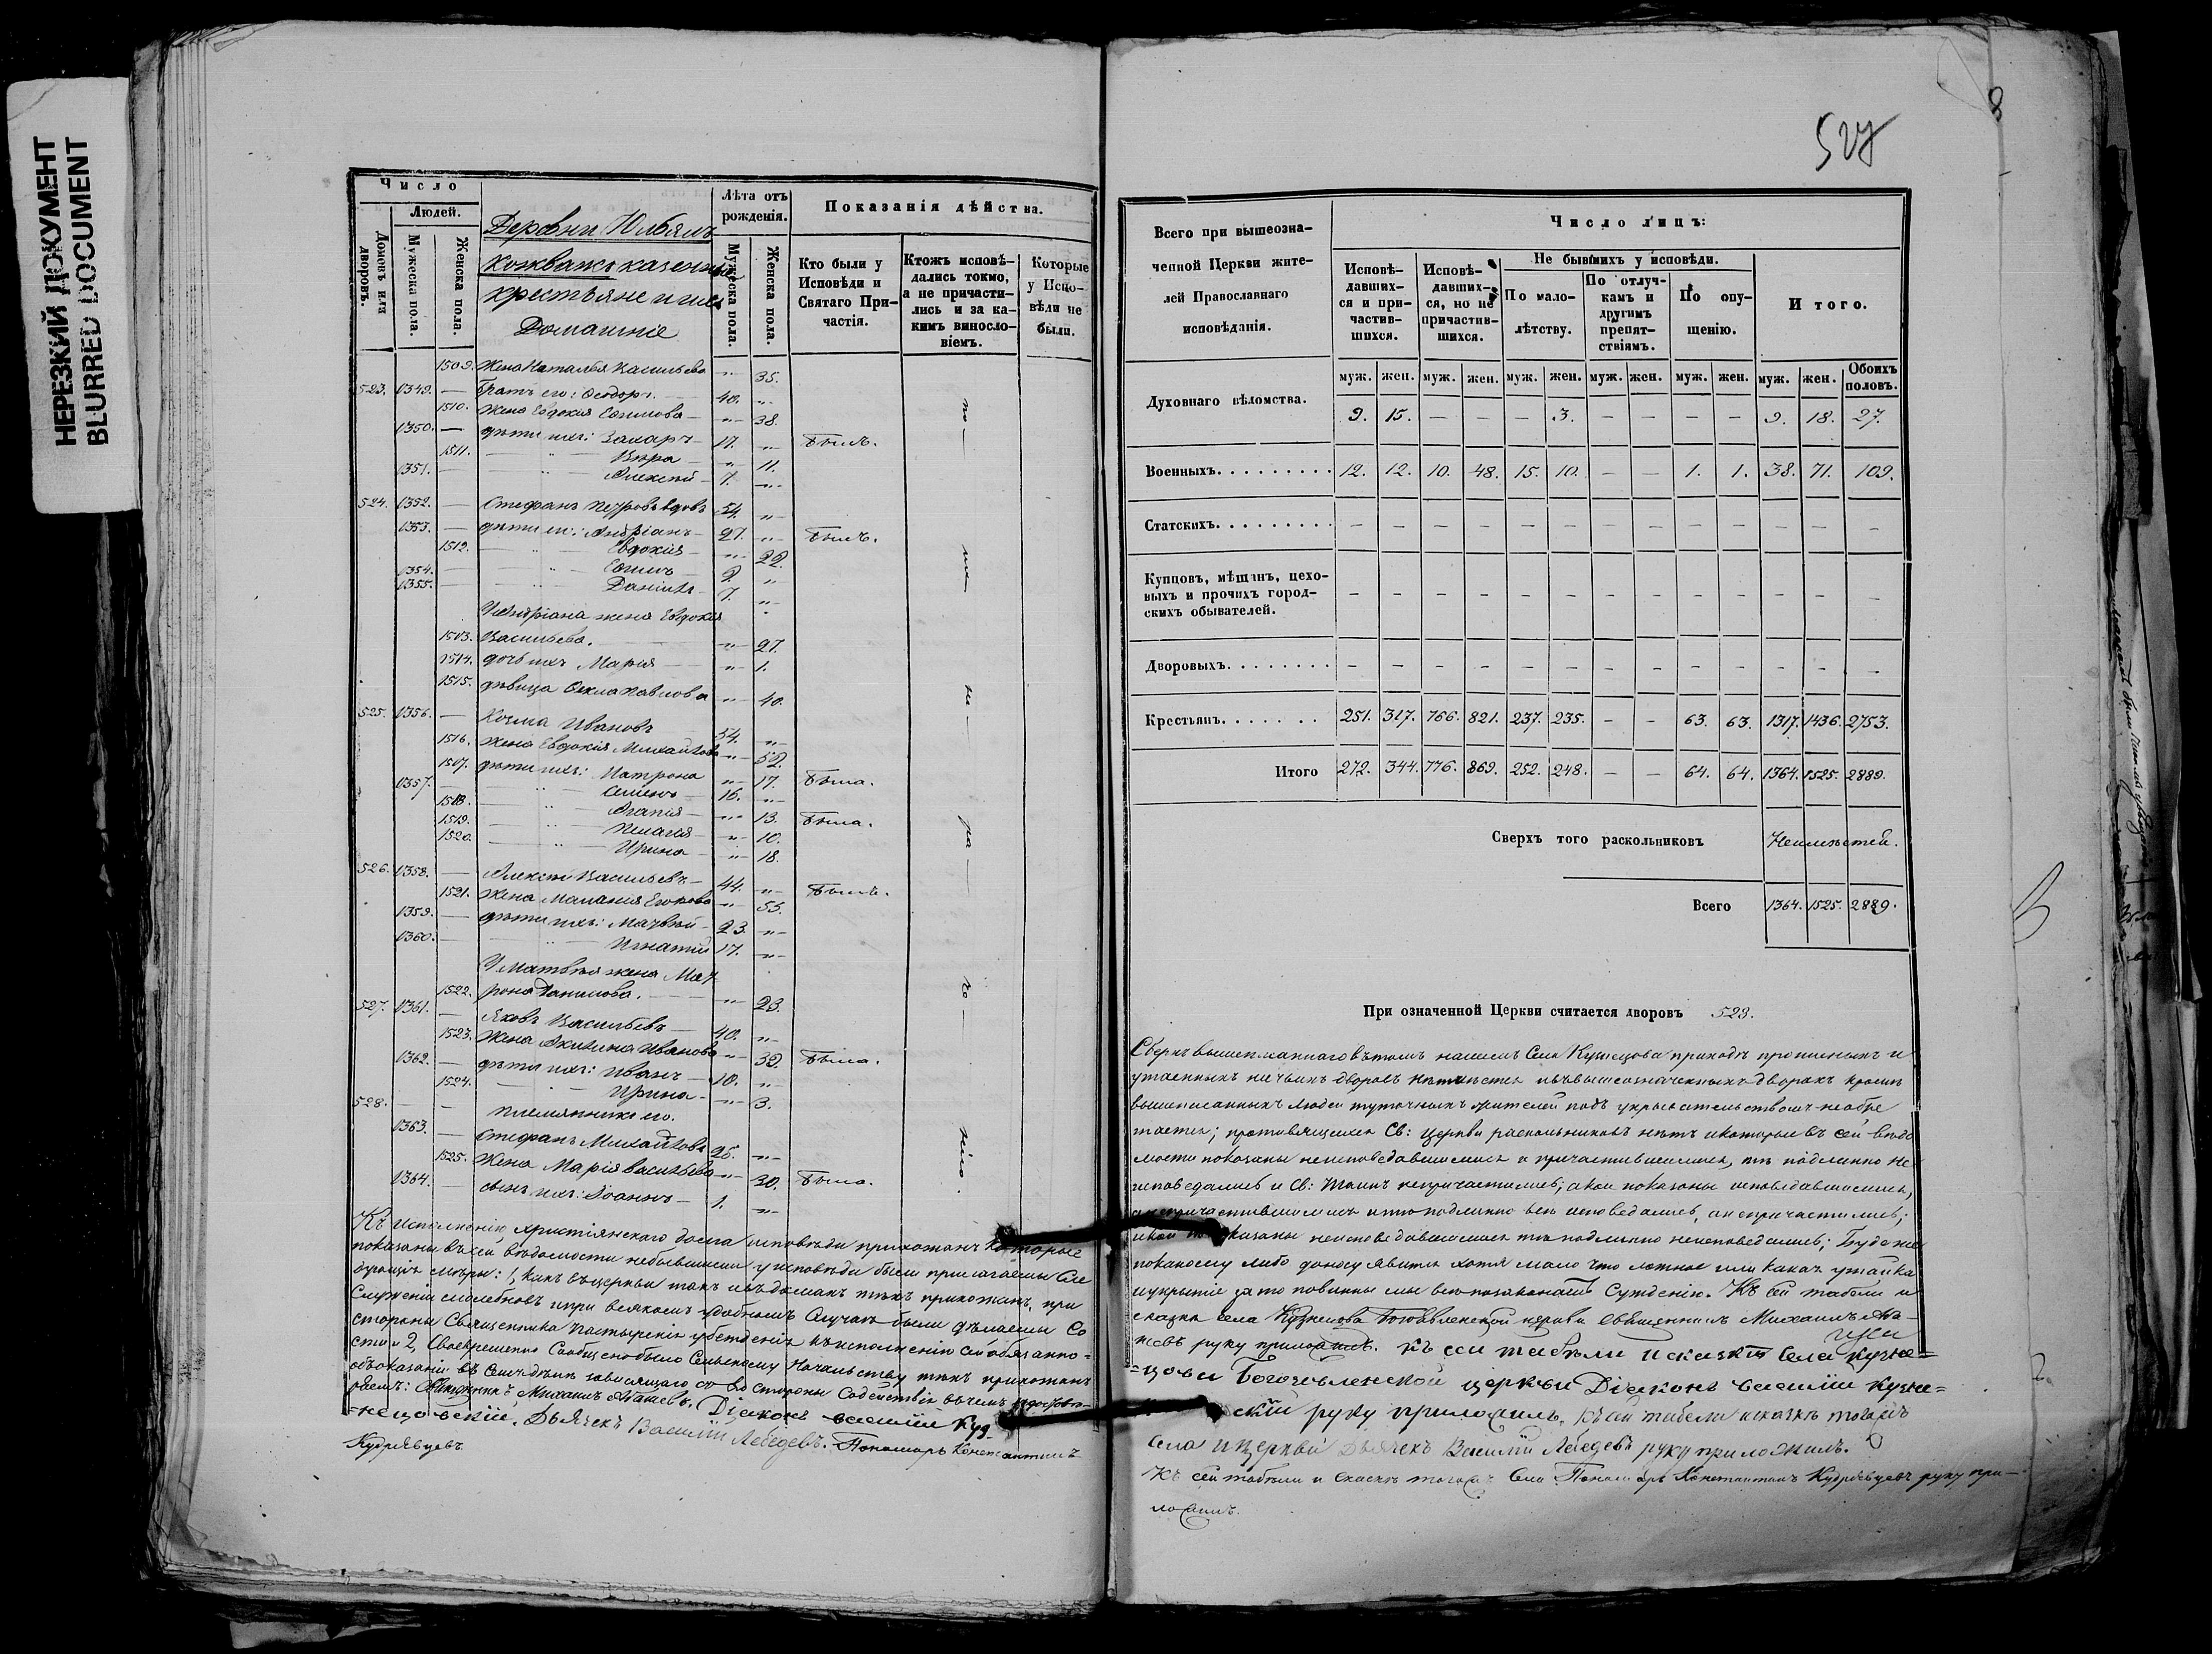 НЕРЕЗКИЙ ДОКУМЕНТ
BLURRED DOCUMENT
Число
Людей.
Домовъ или дворовъ.
Мужеска пола.
Женска пола.
Деревни
казенные
крестьяне и ихъ
Домашніе
Лѣта отъ рожденія.
Мужеска пола.
Женска пола.
Показанія дѣйства.
Кто были у Исповѣди и Святаго Причастія.
Ктожъ исповѣдались токмо, а не причастились и за какимъ винословіемъ.
Которые у Исповѣди не были.
1509. Жена Наталья Васильева „ 35.
523. 1349. — Братъ его: Ѳеодоръ. 40. „
1510. Жена Евдокия Ефимова — „ 38.
1350. — дѣти ихъ: Захаръ — 17. „ былъ.
1511. — „ — Вѣра — „ 11.
1351. — „ — Алексѣй — 7. „
524. 1352. — Стефанъ Петровъ вдовъ 54. „
1353. — дѣти его: Андріанъ — 27. „ былъ.
1512. — „ — Евдокія — „ 22.
1354. — „ — Ефимъ 9. „
1355. — „ — Даніилъ — 7. „
У Андріана жена Евдокія
1503. Васильева. „ 27.
1514. дочь ихъ Марія — „ 1.
1515. дѣвица Ѳекла Павлова „ 40.
525. 1356. — Козма Ивановъ 54. „
1516. Жена Евдокія Михайлова „ 52.
1507. дѣти ихъ: Матрона „ 17. была.
1357. — „ — Семенъ — 16. „
1518. — „ — Агапія — „ 13. была.
1519. — „ — Пелагія — „ 10.
1520. — „ — Ирина — „ 18.
526. 1358. — Алексѣй Васильевъ — 44. „ былъ.
1521. Жена Маланія Егорова „ 55.
1359. — дѣти ихъ: Матвѣй — 23. „
1360. — „ — Игнатій 17. „
У Матвѣя жена Мат
1522. рона Данилова. — „ 23.
527. 1361. — Яковъ Васильевъ — 40. „
1523. Жена Акилина Иванова „ 32. была.
1362. — дѣти ихъ: Иванъ — 10. „
1524. — „ — Ирина — „ 3.
528. — — племянникъ его.
1363. — Стефанъ Михайловъ 25. „
1525. Жена Марія Васильева — „ 30. была.
1364. — сынъ ихъ: Іоаннъ — 1. „
Къ исполненію христіянскаго долга исповѣди прихожанъ которые
показаны въ сей вѣдомости небывшими у исповѣди были прилагаемы слѣ
дующія мѣры: 1, какъ въ церкви такъ и въ домахъ тѣхъ прихожанъ, при
служеніи молебновъ и при всякомъ удобномъ случаѣ были дѣлаемы со
стороны Священника пастырскія убежденія къ исполненію сей обязанно=
сти и 2, Своевременно Сообщено было Сельскому Начальству тѣхъ прихожанъ
объ оказаніи въ семъ дѣлѣ зависящаго со его стороны содействія
Священникъ Михаилъ Діаконъ Василій Куз-
=нецовскій. Дьячекъ Василій Лебедевъ. Пономарь Константинъ
Кудрявцевъ
527
Всего при вышеозначенной Церкви жителей Православнаго исповѣданія.
Число лицъ:
Исповѣдавшихся и причастившихся.
Исповѣдавшихся, но не причастившихся.
Не бывшихъ у исповѣди.
По малолѣтству.
По отлучкамъ и другимъ препятствіямъ.
По опущенію.
Итого.
муж. жен. муж. жен. муж. жен. муж. жен. муж. жен. муж. жен. Обоихъ половъ.
Духовнаго вѣдомства. 9. 15. — — — 3. — — — — 9. 18. 27.
Военныхъ. 12. 12. 10. 48. 15. 10. — — 1. 1. 38. 71. 109.
Статскихъ. — — — — — — — — — — — — —
Купцовъ, мѣщанъ, цеховыхъ и прочихъ городскихъ обывателей. — — — — — — — — — — — — —
Дворовыхъ. — — — — — — — — — — — — —
Крестьянъ. 251. 317. 766. 821. 237. 235. — — 63. 63. 1317. 1436. 2753.
Итого 272. 344. 776. 869. 252. 248. — — 64. 64. 1364. 1525. 2889.
Сверхъ того раскольниковъ Неимѣется.
Всего 1364. 1525. 2889.
При означенной Церкви считается дворовъ 528.
Сверхъ вышеписаннаго въ томъ нашемъ Селѣ Кузнецовѣ приходѣ прописныхъ и
утаенныхъ ничьихъ дворовъ неимѣется и въ вышеозначенныхъ дворахъ кромѣ
вышеписанныхъ людей тутошныхъ жителей подъ укрывательствомъ необре
тается; противящихся Св: Церкви раскольниковъ нѣтъ и которые въ сей вѣдо
мости показаны неисповедавшимися и причастившимися, тѣ подлинно не
исповедались и Св: Таинъ непричастились; а кои показаны исповедавшимися,
а непричастившимися и то подлинно они исповедались, а непричастились;
и кои показаны неисповедавшимися тѣ подлинно неисповедались; Буде же
по какому либо доносу явится хотя мало что ложное или какая утайка
и укрытіе за то повинны мы законному Сужденію. Къ сей табели и
сказкѣ села Кузнецова Богоявленской церкви Священникъ Михаилъ
руку приложилъ. Къ сей табели и сказкѣ села Кузне=
=цова Богоявленской церкви Діаконъ Василій Кузне=
скій руку приложилъ. Къ сей табели и сказкѣ тогожъ
села и церкви Дьячекъ Василій Лебедевъ руку приложилъ.
Къ сей табели и сказкѣ тогожъ села Пономарь Константинъ Кудрявцевъ руку при—
ложилъ.